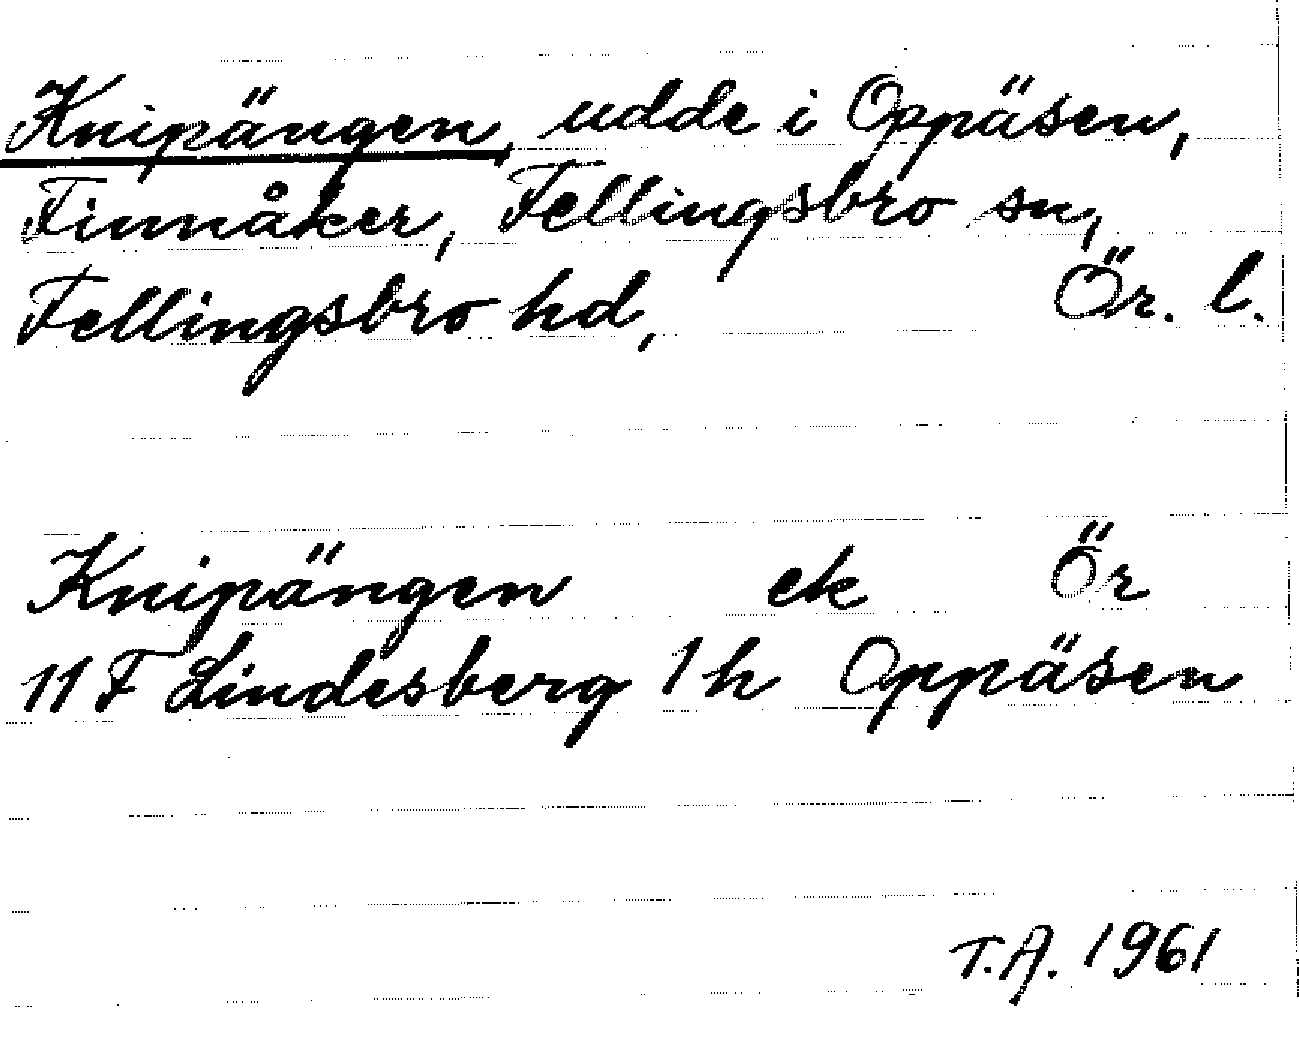 Knipängen, udde i Oppäsen,
Finnåker, Fellingsbro sn,
Fellingsbro hd, Ör. l.
Knipängen ek Ör
11 F Lindesberg 1 h Oppäsen
T.A. 1961